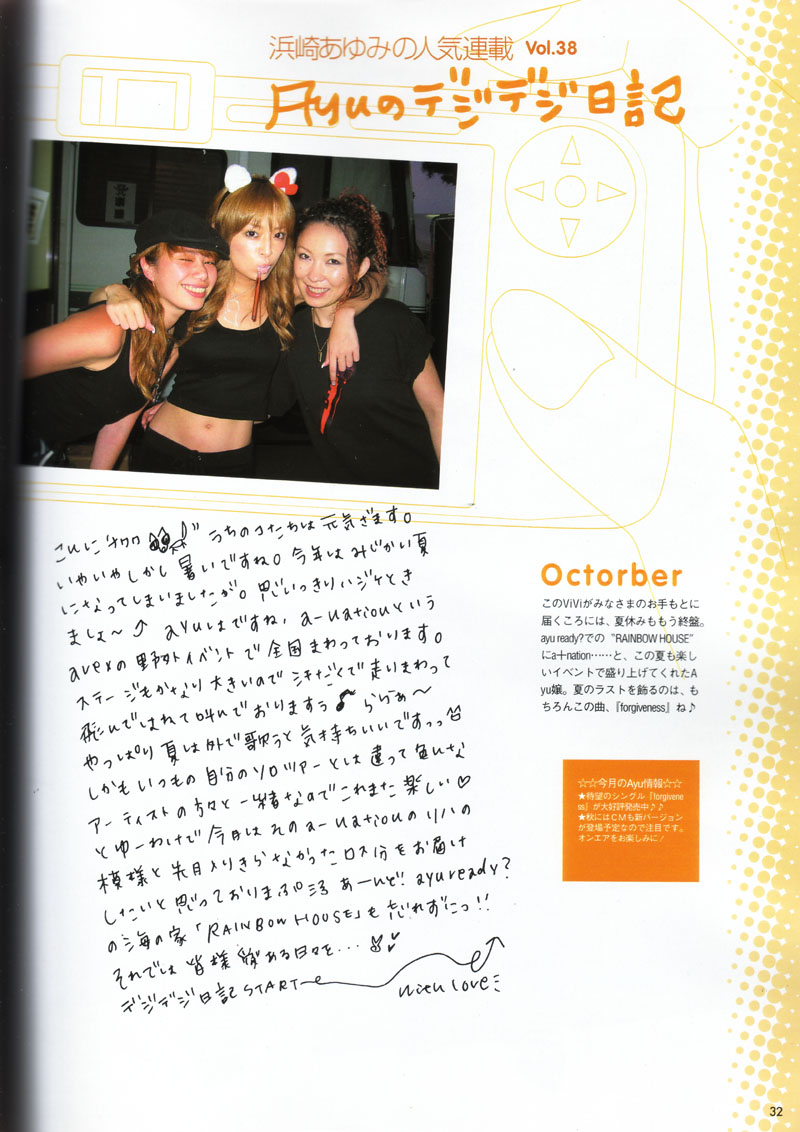 浜崎あゆみの人気連載 Vol.38
Ayuのデジデジ日記
こんにチワワ うちのコたちは元気ざます。
いやいやしかし暑いですね。今年はみじかい夏
になってしまいましたが。思いっきりハジケとき
ましょ〜 ayuはですね、a-nationという
avexの野外イベントで全国まわっております。
ステージもかなり大きいので 走りまわって
飛んではねて叫んでおりますぅ ららぁ〜
やっぱり夏は外で歌うと気持ちいいですっっ
しかもいつもの自分のソロツアーとは違って色んな
アーティストの方々と一緒なのでこれまた楽しい♡
とゆーわけで今日はそのa-nationのリハの
模様と先月入りきらなかったロス分をお届け
したいと思っておりまぷ る あーんど! ayu ready?
の海の家「RAINBOW HOUSE」も忘れずにっ!!
それでは皆様 ある日々を...
デジデジ日記START
with love
Octorber
このViViがみなさまのお手もとに
届くころには、夏休みももう終盤。
ayu ready?での“RAINBOW HOUSE”
にa+nation……と、この夏も楽し
いイベントで盛り上げてくれたA
yu嬢。夏のラストを飾るのは、も
ちろんこの曲、『forgiveness』ね♪
☆☆今月のAyu情報☆☆
★待望のシングル『forgivene
ss』が大好評発売中♪♪
★秋にはCMも新バージョン
が登場予定なので注目です。
オンエアをお楽しみに!
32